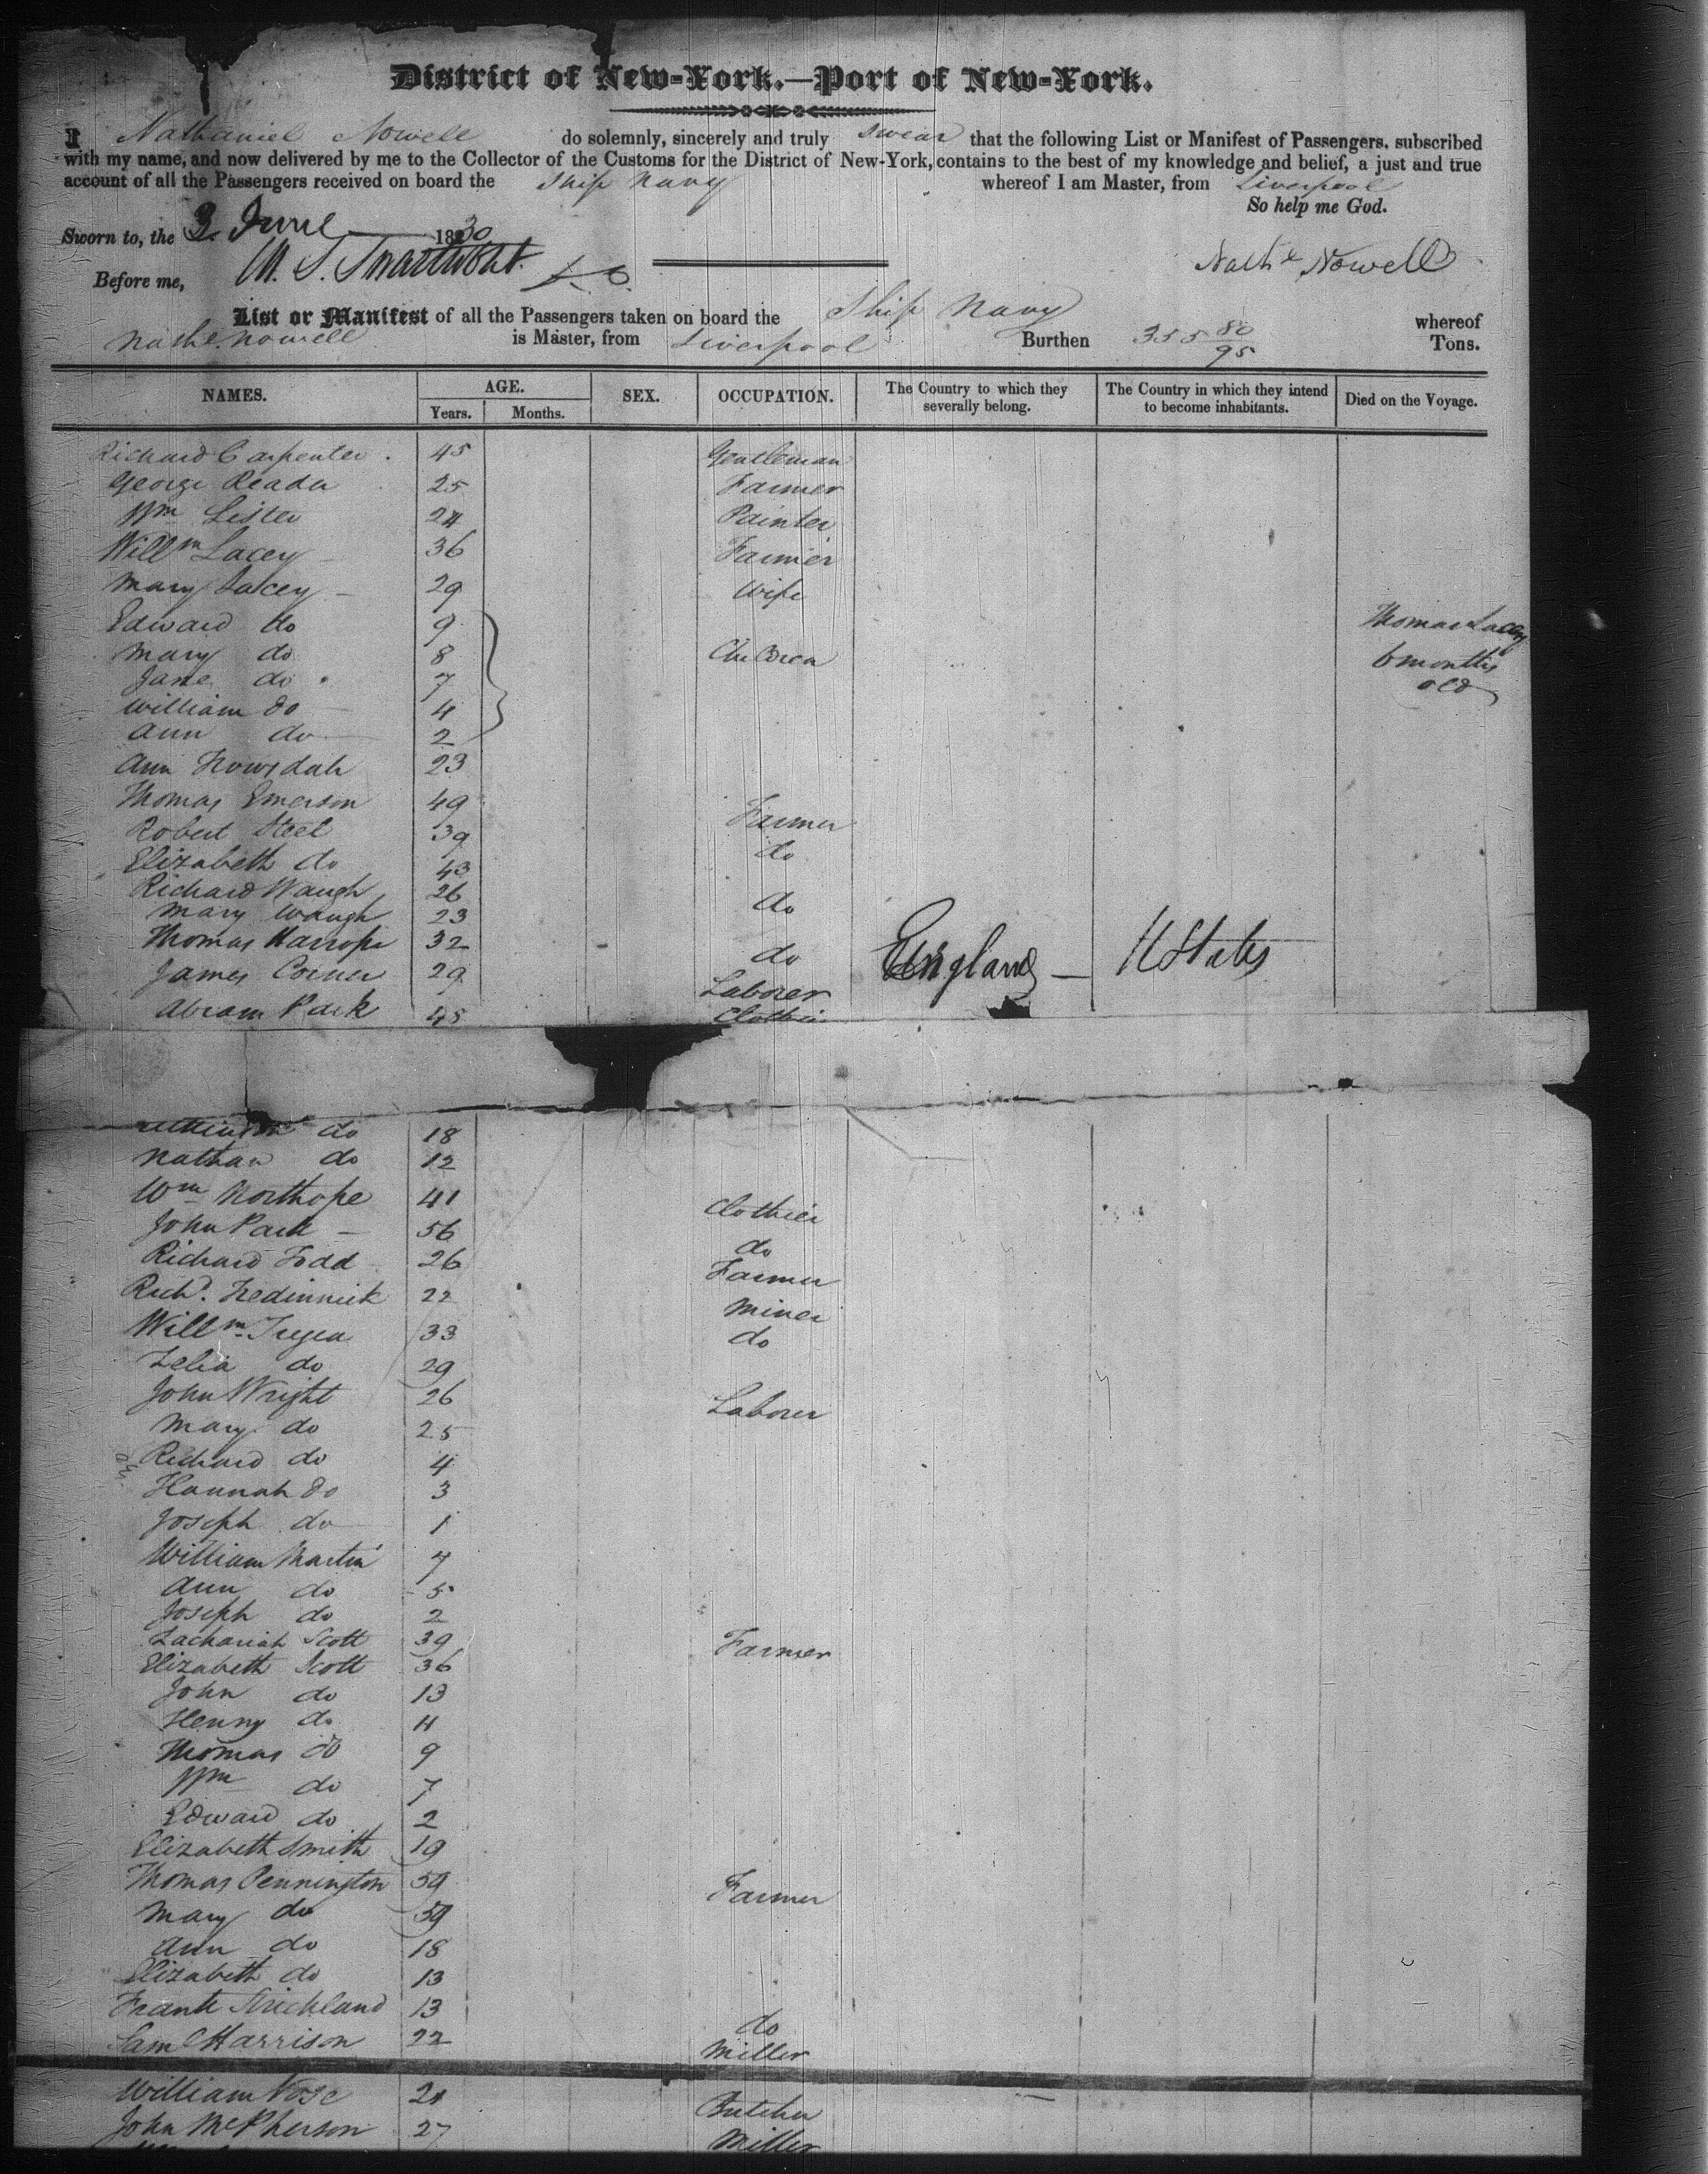 District of New-York.—Port of New-York.
I Nathaniel Nowell do solemnly, sincerely and truly swear that the following List or Manifest of Passengers, subscribed
with my name, and now delivered by me to the Collector of the Customs for the District of New-York, contains to the best of my knowledge and belief, a just and true
account of all the Passengers received on board the Ship Navy whereof I am Master, from Liverpool
So help me God.
Sworn to, the 3 June 1830
Before me, Nowell
List or Manifest of all the Passengers taken on board the Ship Navy whereof
Nowell is Master, from Liverpool Burthen 355 80/95 Tons.
NAMES. AGE. SEX. OCCUPATION. The Country to which they severally belong. The Country in which they intend to become inhabitants. Died on the Voyage.
Years. Months.
Richard Carpenter 45 Gentleman
George Reader 25 Farmer
Wm Lister 24 Painter
Willm Lacey 36 Farmer
Mary Lacey 29 Wife
Edward do 9 Thomas Lacey
Mary do 8 Children 6 months
Jane do 7 old
William do 4
Ann do 2
Ann 23
Thomas Emerson 49 Farmer
Robert Steel 39 do
Elizabeth do 43
Richard Waugh 26 do
Mary Waugh 23
Thomas Harrope 32 do England — U States
James Corner 29 Laborer
Abram Park 45 Clothier
do 18
Nathan do 12
Wm Northope 41 Clothier
John Park 56 do
Richard Todd 26 Farmer
Richd. Tredinnick 22 Miner
Willm Tregea 33 do
Zelia do 29
John Wright 26 Laborer
Mary do 25
Richard do 4
Hannah do 3
Joseph do 1
William Martin 7
Ann do 5
Joseph do 2
Zachariah Scott 39 Farmer
Elizabeth Scott 36
John do 13
Henry do 11
Thomas do 9
Wm do 7
Edward do 2
Elizabeth Smith 19
Thomas Pennington 59 Farmer
Mary do 59
Ann do 18
Elizabeth do 13
Frank Strickland 13 do
Saml Harrison 22 Miller
William Vose 21 Butcher
John McPherson 27 Miller